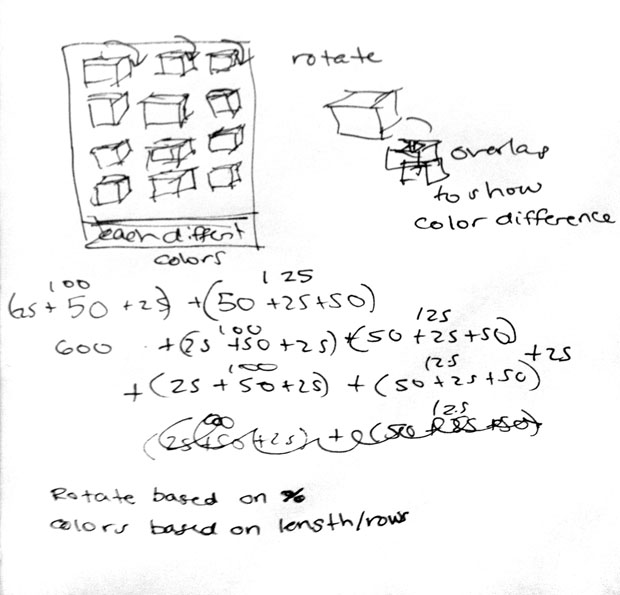 rotate
overlap
to show
color difference
each diffent
colors
100 125
(25 + 50 + 25) + (50 + 25 + 50)
100 125
600 + (25 + 50 + 25) + (50 + 25 + 50)
100 125 + 25
+ (25 + 50 + 25) + (50 + 25 + 50)
100 125
(25 + 50 + 25) + (50 + 25 + 50)
Rotate based on %
colors based on length/rows